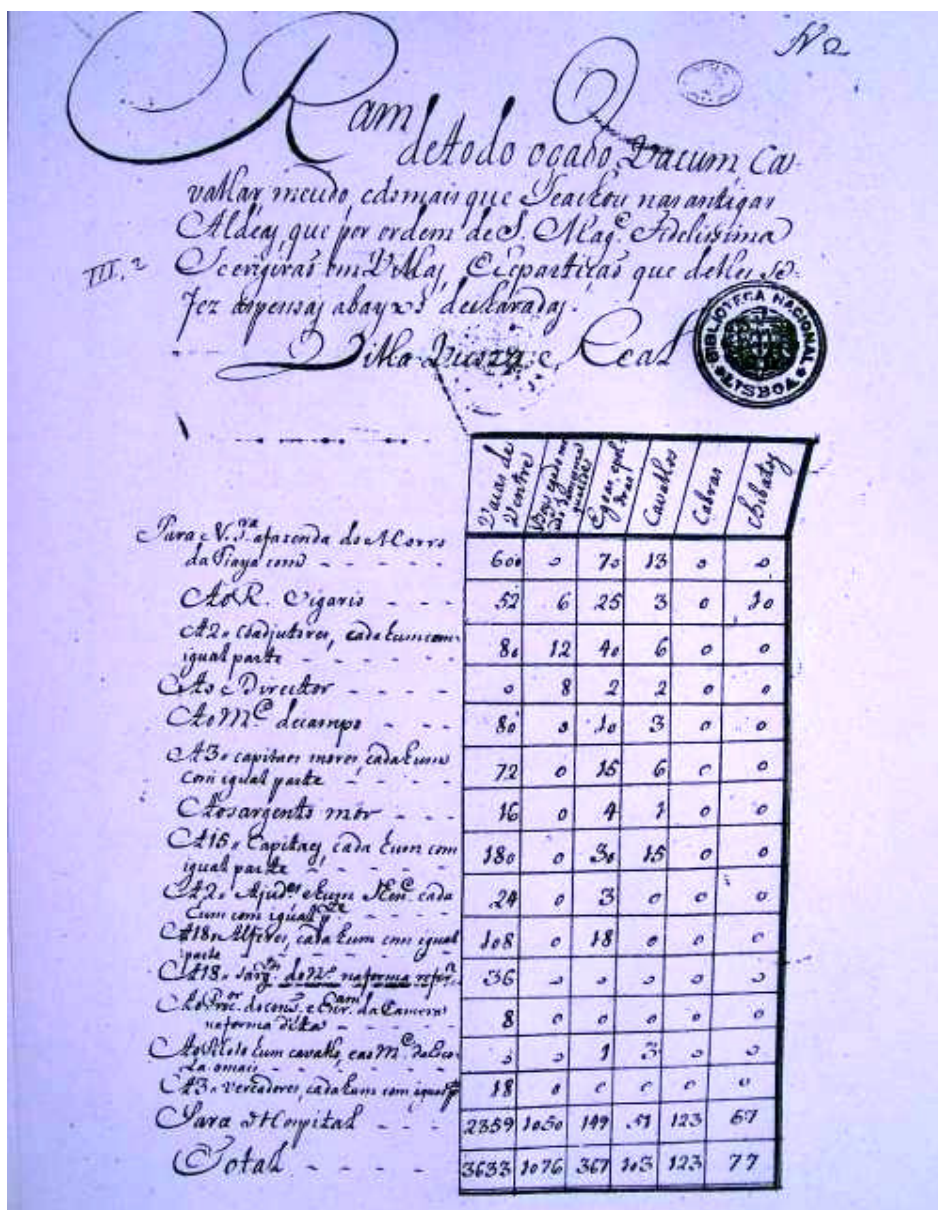 N 2
Ram
de todo o gado Vacum Ca
vallar, meudo, e do mais que Se achou nas antigas
Aldeas, que por ordem de S. Mag.e Fidelissima
III, 2
em Villas, que delles se
fez as pessoas abayxo declaradas.
Villa Viçoza Real
BIBLIOTECA NACIONAL LISBOA
Vacas de Ventre
Egoas
Cavalos
Cabras
Chibatos
Para V. S.ra a fazenda do Morro
da com - - - - - 600 0 70 13 0 0
Ao R. Vigario - - - 52 6 25 3 0 10
A 2. Coadjutores, cada hum com
igual parte - - - - - 80 12 40 6 0 0
Ao Director - - - - 0 8 2 2 0 0
Ao M.e de campo - - - 80 0 10 3 0 0
A 3. capitaes mores, cada hum
com igual parte - - - - 72 0 15 6 0 0
Ao sargento mór - - - 16 0 4 1 0 0
A 15. Capitaes, cada hum com
igual parte - - - - 180 0 30 15 0 0
A 2. Ajud.es e hum cada
hum com igual p.te 24 0 3 0 0 0
A 18. Alferes, cada hum com igual
parte - - - - - 108 0 18 0 0 0
A 18. do N.o na forma 36 0 0 0 0 0
da Camera
na forma dita - - - - 8 0 0 0 0 0
hum cavallo, e ao M.e
o mais - - - - 0 0 1 3 0 0
A 3. vereadores, cada hum com igual 18 0 0 0 0 0
Para o Hospital - - - 2359 1050 149 51 123 67
Total - - - - 3633 1076 367 103 123 77